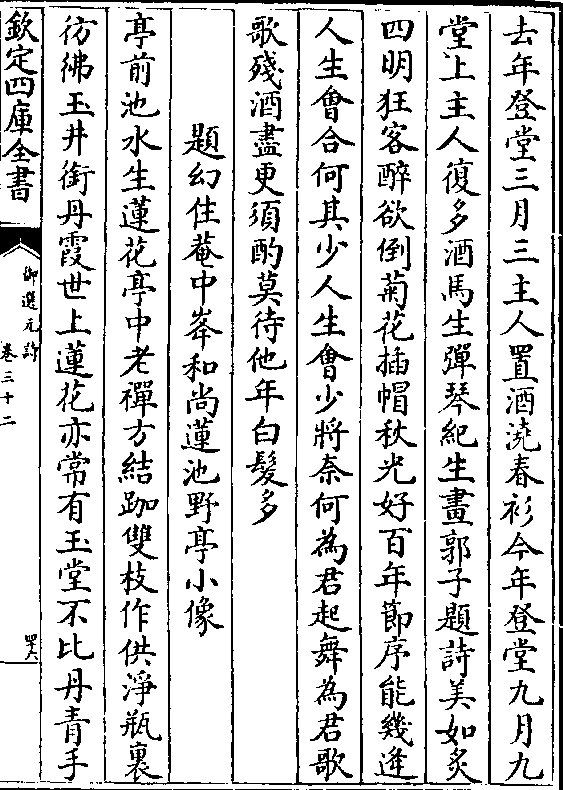 去年登堂三月三主人置酒澆春衫今年登堂九月九
堂上主人復多酒馬生彈琴紀生畫郭子題詩美如炙
四明狂客醉欲倒菊花插帽秋光好百年節序能幾逢
人生㑹合何其少人生㑹少將奈何為君起舞為君歌
歌殘酒盡更須酌莫待他年白髮多
題幻住菴中峯和尚蓮池野亭小像
亭前池水生蓮花亭中老禪方結跏雙枝作供淨瓶裏
彷彿玉井銜丹霞世上蓮花亦常有玉堂不比丹青手
欽定四庫全書
御選元詩
卷三十二
罢六